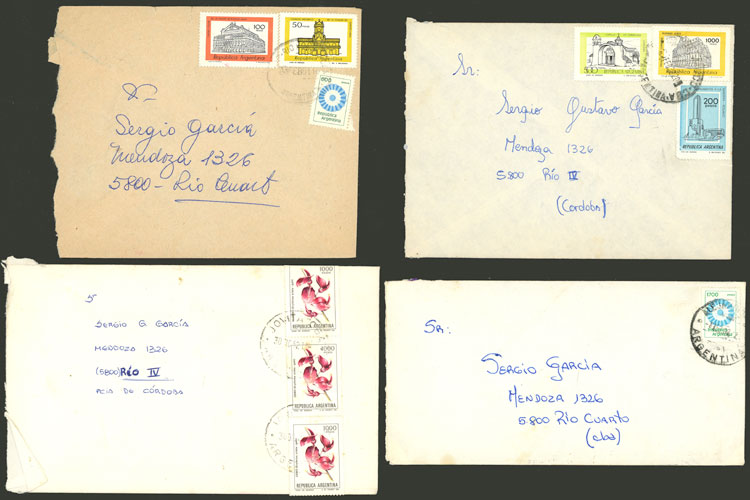 100
50
República Argentina
República Argentina
800
República
Argentina
Sr
Sergio García
Mendoza 1326
5800 - Río Cuart
500
1000
REPUBLICA ARGENTINA
República Argentina
200
REPUBLICA ARGENTINA
Sr:
Sergio Gustavo García
Mendoza 1326
5800 Río IV
(Cordoba)
1000
REPUBLICA ARGENTINA
1000
REPUBLICA ARGENTINA
1000
REPUBLICA ARGENTINA
JOVITA
Sergio G. García
Mendoza 1326
(5800) Río IV
Pcia de Córdoba
1700
ARGENTINA
Sr:
Sergio García
Mendoza 1326
5800 Río Cuarto
(cba)